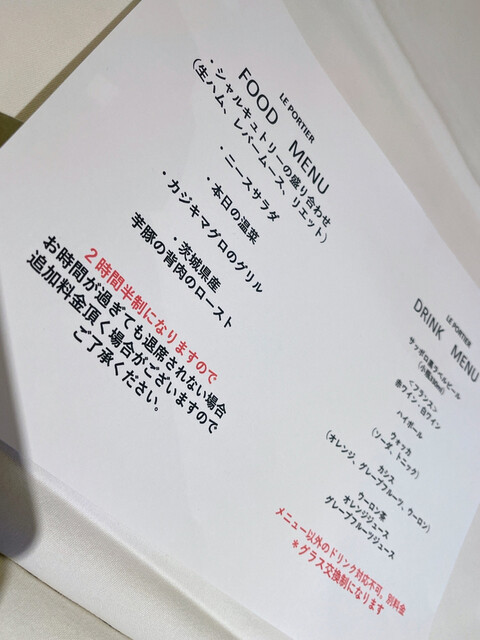 LE PORTIER
FOOD MENU
・シャルキュトリーの盛り合わせ
(生ハム、レバームース、リエット)
・ニースサラダ
・本日の温菜
・カジキマグロのグリル
・茨城県産
芋豚の背肉のロースト
2時間半制になりますので
お時間が過ぎても退席されない場合
追加料金頂く場合がございますので
ご了承ください。
LE PORTIER
DRINK MENU
サッポロ黒ラベルビール
<フランス>
赤ワイン・白ワイン
ハイボール
ウォッカ
(ソーダ、トニック)
カシス
(オレンジ、グレープフルーツ、ウーロン)
ウーロン茶
オレンジジュース
グレープフルーツジュース
メニュー以外のドリンク対応不可。別料金
*グラス交換制になります